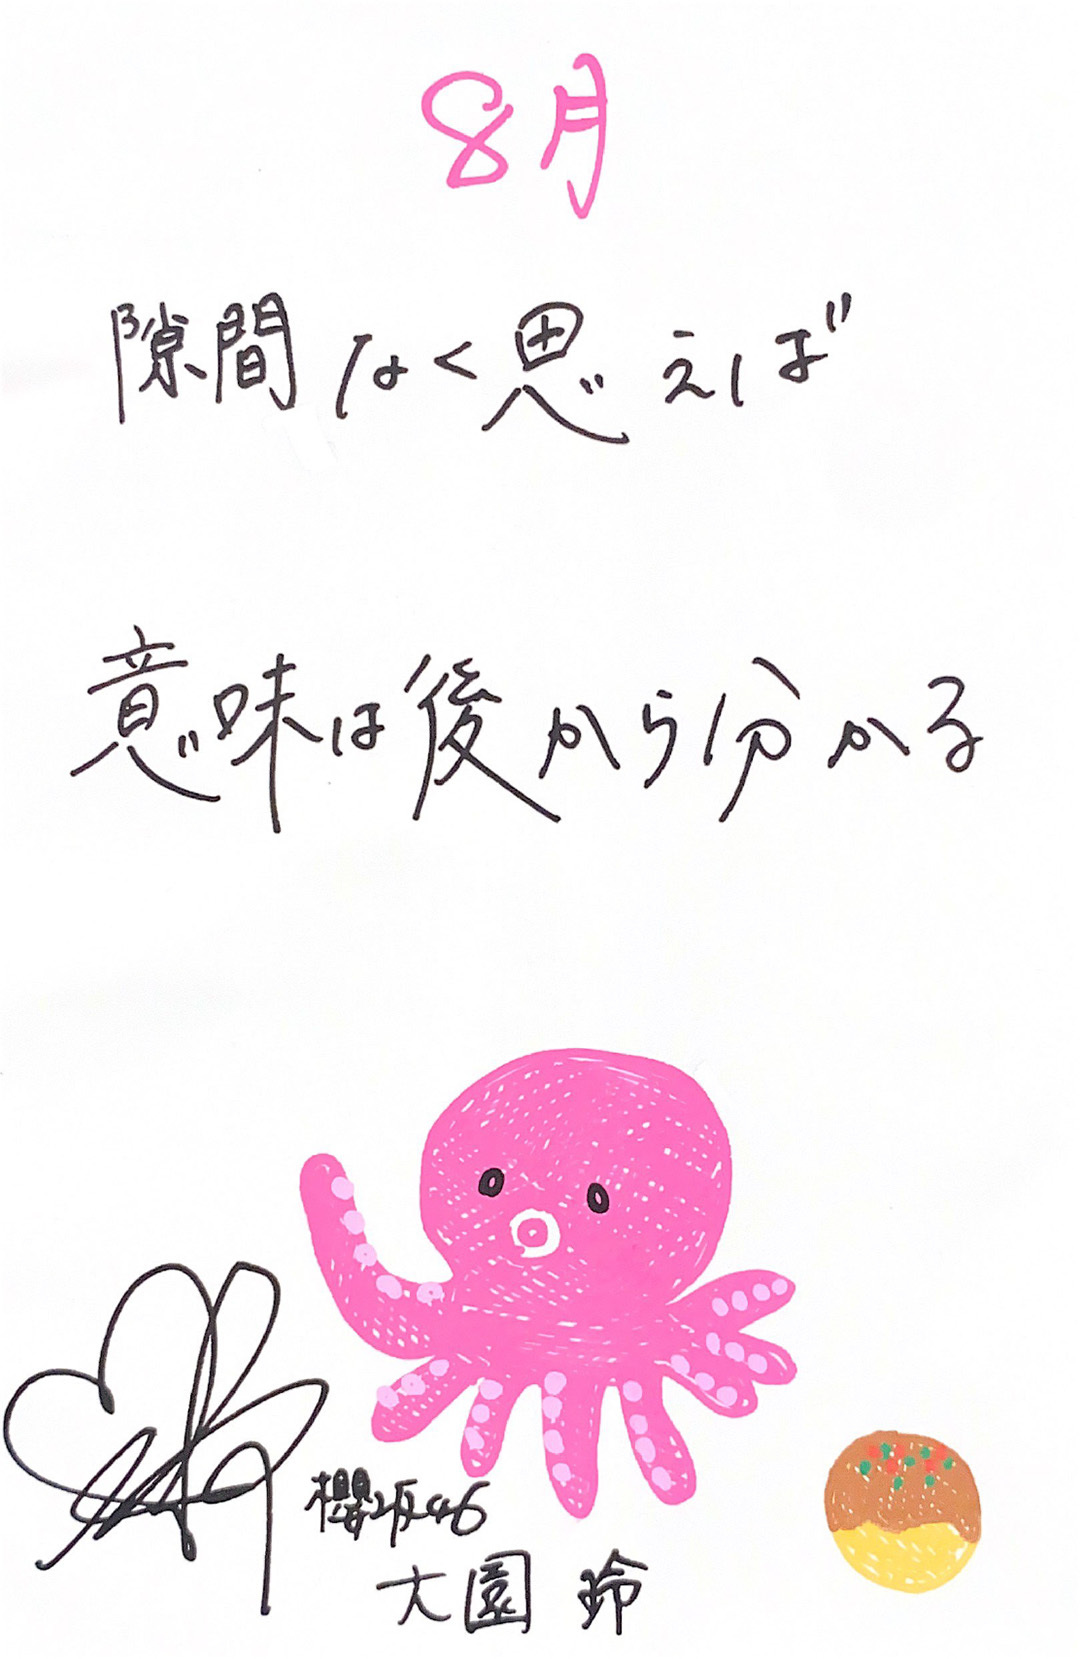 8月
隙間なく思えば
意味は後から分かる
櫻坂46
大園 玲